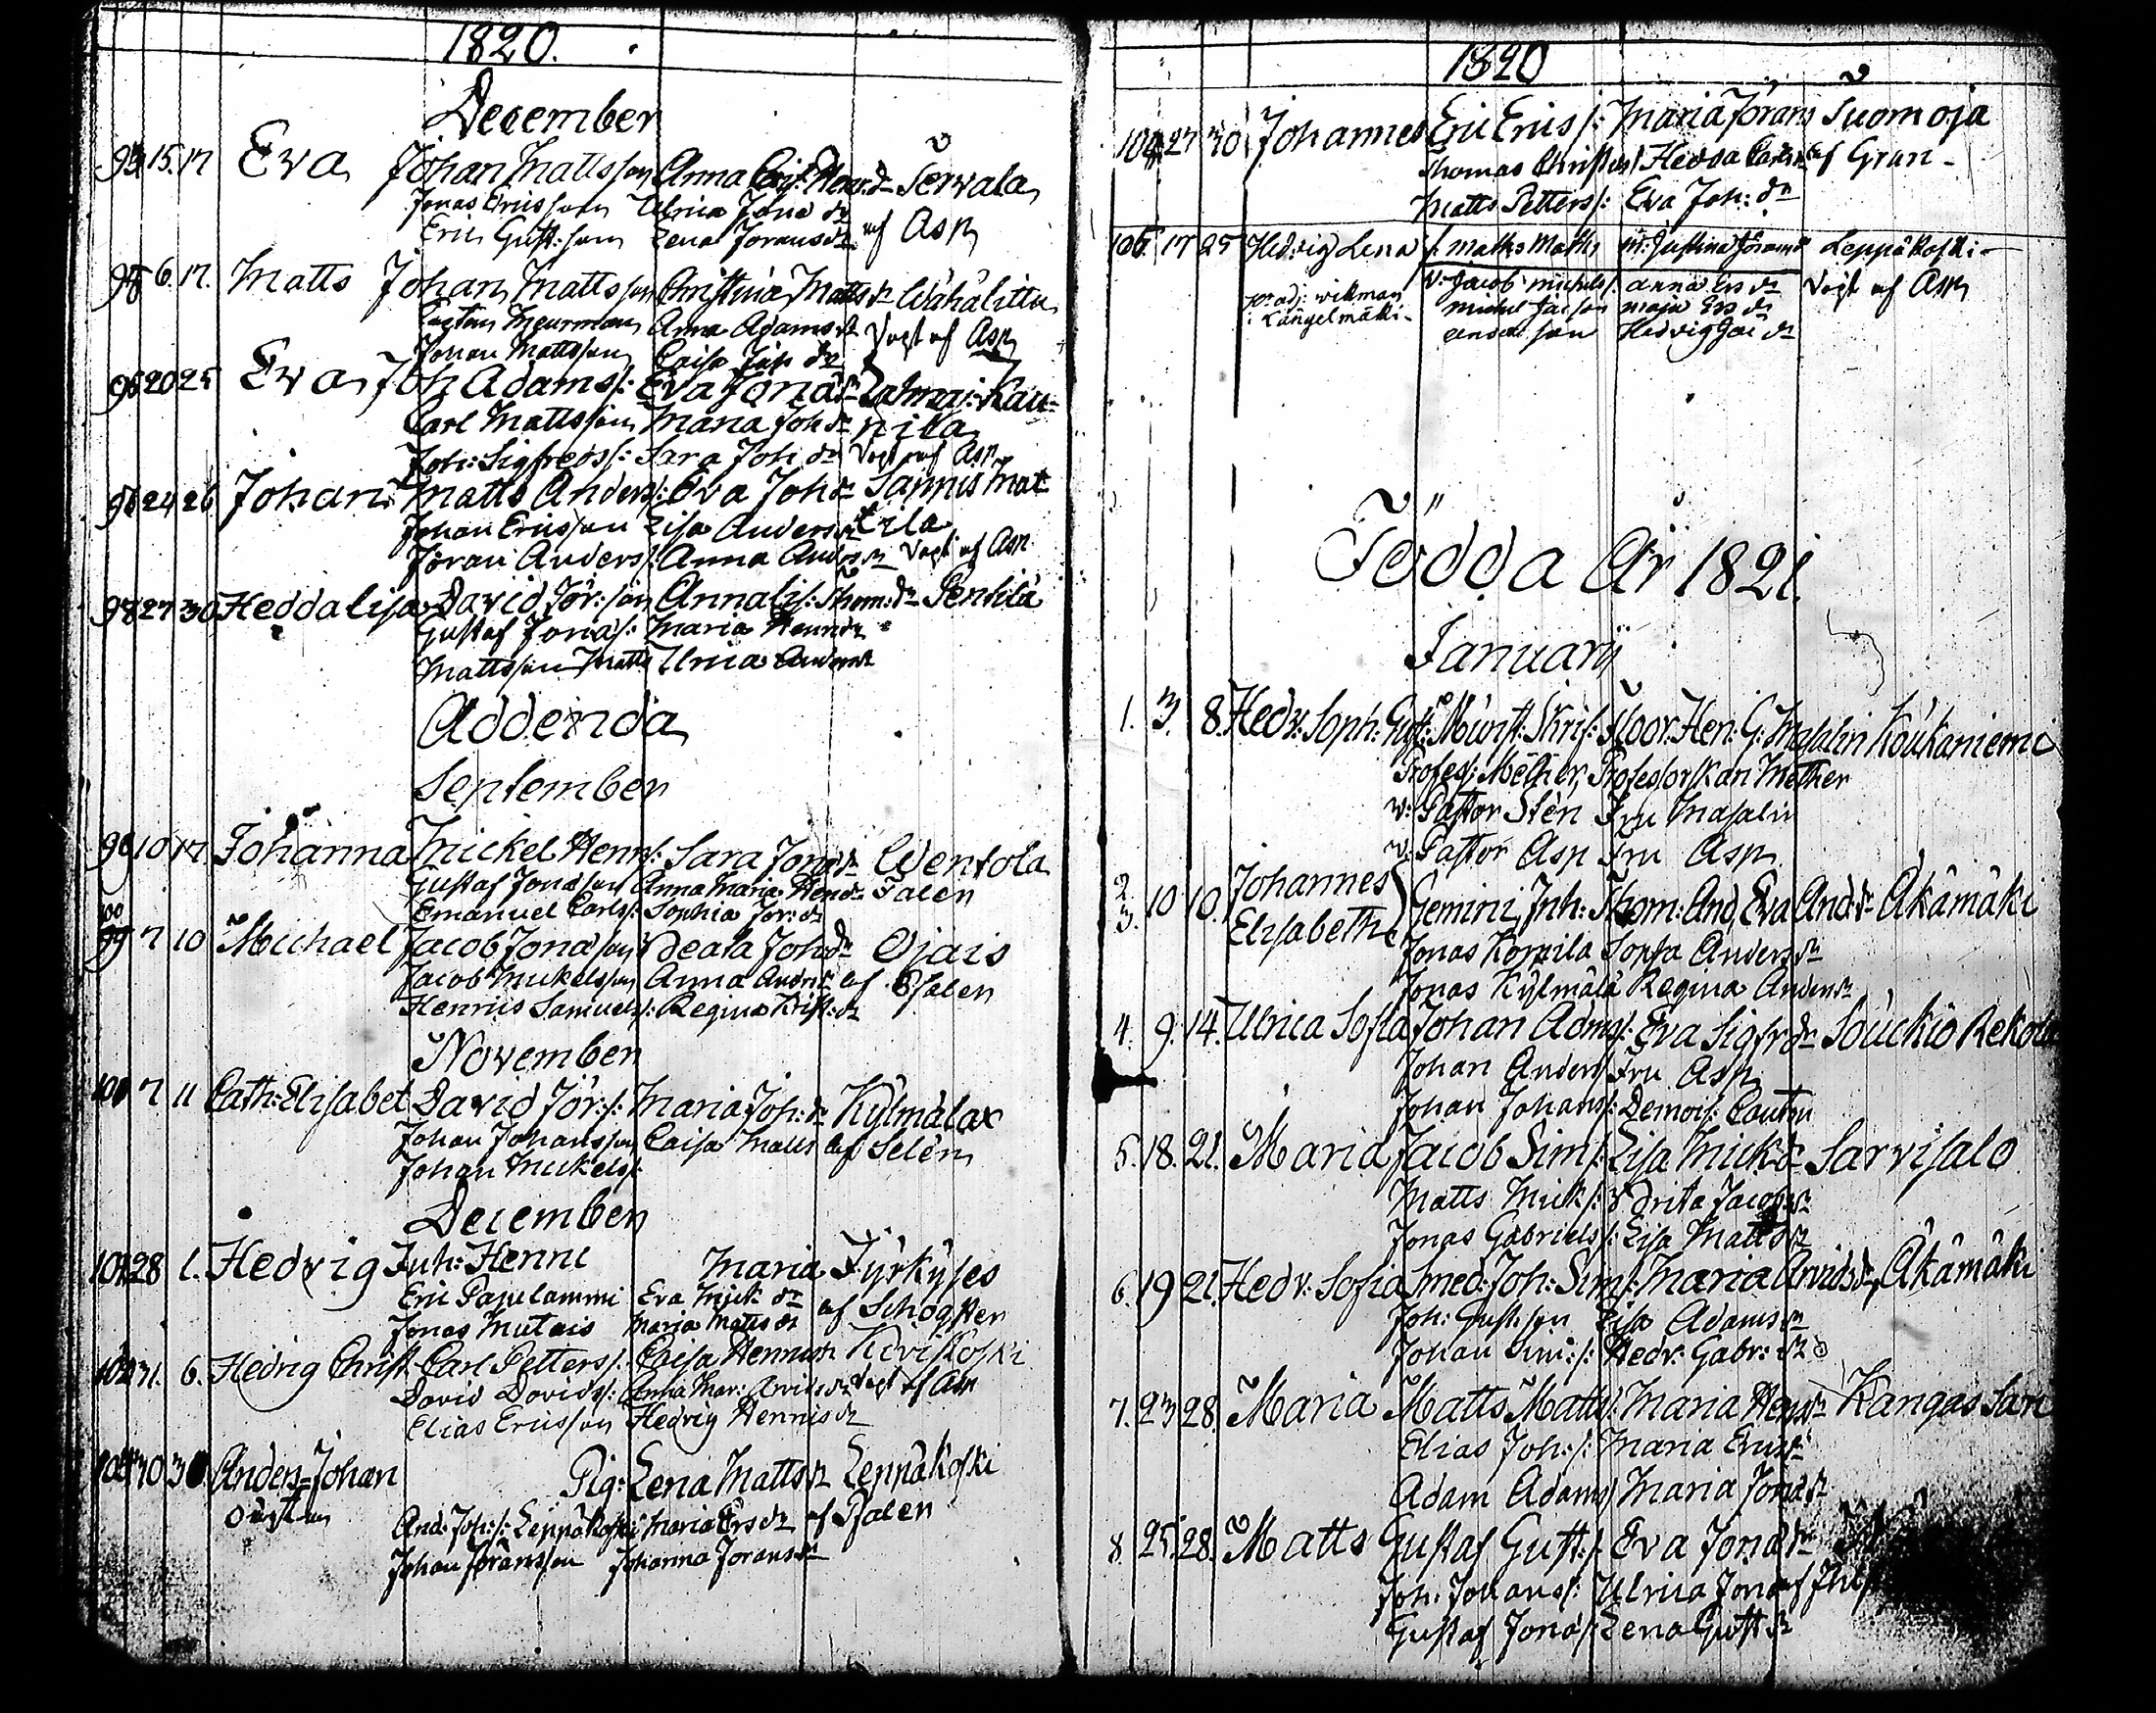 1820.
December
15. 17 Eva Johan Mattsson Anna Servala
Jonas Ericsson Ulrica Jona dr
Eric Gust:son Lena Joransdr af Asp
6. 17. Matts Johan Mattsson Christina Matts dr Wähälittu
Meurman Anna Adamsdr Döpt af Asp
Johan Mattsson Caisa Joh dr
20 25 Eva Joh Adams/: Eva Jonadr Kau-
Carl Mattsson Maria Joh dr nila
Joh: Sigfreds/: Sara Joh dr Döpt af Asp
24 26 Johan Matts Anders/: Eva Joh dr Mat-
Johan Ericsson Lisa Anders dr tila
Jöran Anders/: Anna And dr Döpt af Asp
98 27 30 Hedda Lisa David Jör:son Annalis: Thom: dr Pentilä
Gustaf Jonas/: Maria Henr dr
Mattsson Matts Ulrica Anders dr
Addenda
September
10 17 Johanna Mickel Henr/: Sara Jonadr Wentola
Gustaf Jonasson Anna Maria Henr dr Palen
Emanuel Carls/: Sophia Jör: dr
100
99 7 10 Michael Jacob Jonasson Beata Joh dr Ojais
Jacob Mickelsson Anna Andr dr af Psalen
Henric Samuels/: Regina Krist: dr
November
7 11 Cath: Elisabet David Jör:/: Maria Joh: dr Kylmälax
Johan Johansson Caisa Matts af Selén
Johan Mickels/:
December
28 1. Hedvig Inh: Henric Maria Jyrkyses
Eric Papilammi Eva Mick dr af Schogster
Jonas Mutais Maria Matts dr
31. 6. Hedvig Christ Carl Petters/: Caisa Henricsdr Koviskoski
David Davids/: Anna Mar: Arvids dr Döpt af Asp
Elias Ericsson Hedvig Henricsdr
30 30 Anders-Johan Pig: Lena Matts dr Leppäkoski
oägta And: Joh:/: Leppäkoski Maria Ers dr af Psalen
Johan Jöransson Johanna Jorans dr
1820
27 30 Johannes Eric Erics/: Maria Jörans Suomoja
Thomas Christers/ Hedda Carls dr af Gran-
Matts Petters/: Eva Joh: dr
17 25 Hedvig Lena f. Matts Matts m: Justina Jörans Leppäkoski-
v: Jacob Michels/: Anna Ers dr Döpt af Asp
adj: Wikman Michel Jac son Maja Ers dr
i Längelmäki- Hedvig Jac dr
Födda År 1821.
Januarii
1. 3. 8. Hedv: Soph: Gust: Münst: Skrif: Floor: Hen: G: Masalin Koukaniemi
Profess: Mether, Professorskan Mether
v: Pastor Stén Fru Masalin
v: Pastor Asp Fru Asp
2 3. 10 10. Johannes Elisabeth } Gemini, Inh: Thom: And, Eva And: dr Äkämäki
Jonas Kompila Sophia Anders dr
Jonas Kylmälä Regina Anders dr
4. 9. 14. Ulrica Sofia Johan Adms/: Eva Sigfr dr Souckio Rekola
Johan Anders/ Fru Asp
Johan Johans/: Demois: Couton
5. 18. 21. Maria Jacob Sim/: Lisa Mick dr Sarvisalo
Matts Mick/: Brita Jacobs dr
Jonas Gabriels/: Lisa Matts dr
6. 19 21. Hedv: Sofia Smed: Joh: Sim/: Maria Arvids dr Äkämäki
Joh: Gust: son Lisa Adams dr
Johan Sim:/: Hedv: Gabr: dr
7. 23 28. Maria Matts Matts/: Maria Henr dr Kangas Sari
Elias Joh:/: Maria Erics dr
Adam Adams/ Maria Jonadr
8. 25. 28. Matts Gustaf Gust:/: Eva Jonadr
Joh: Johans/: Ulrica Jona af
Gustaf Jonas/: Lena Gust dr